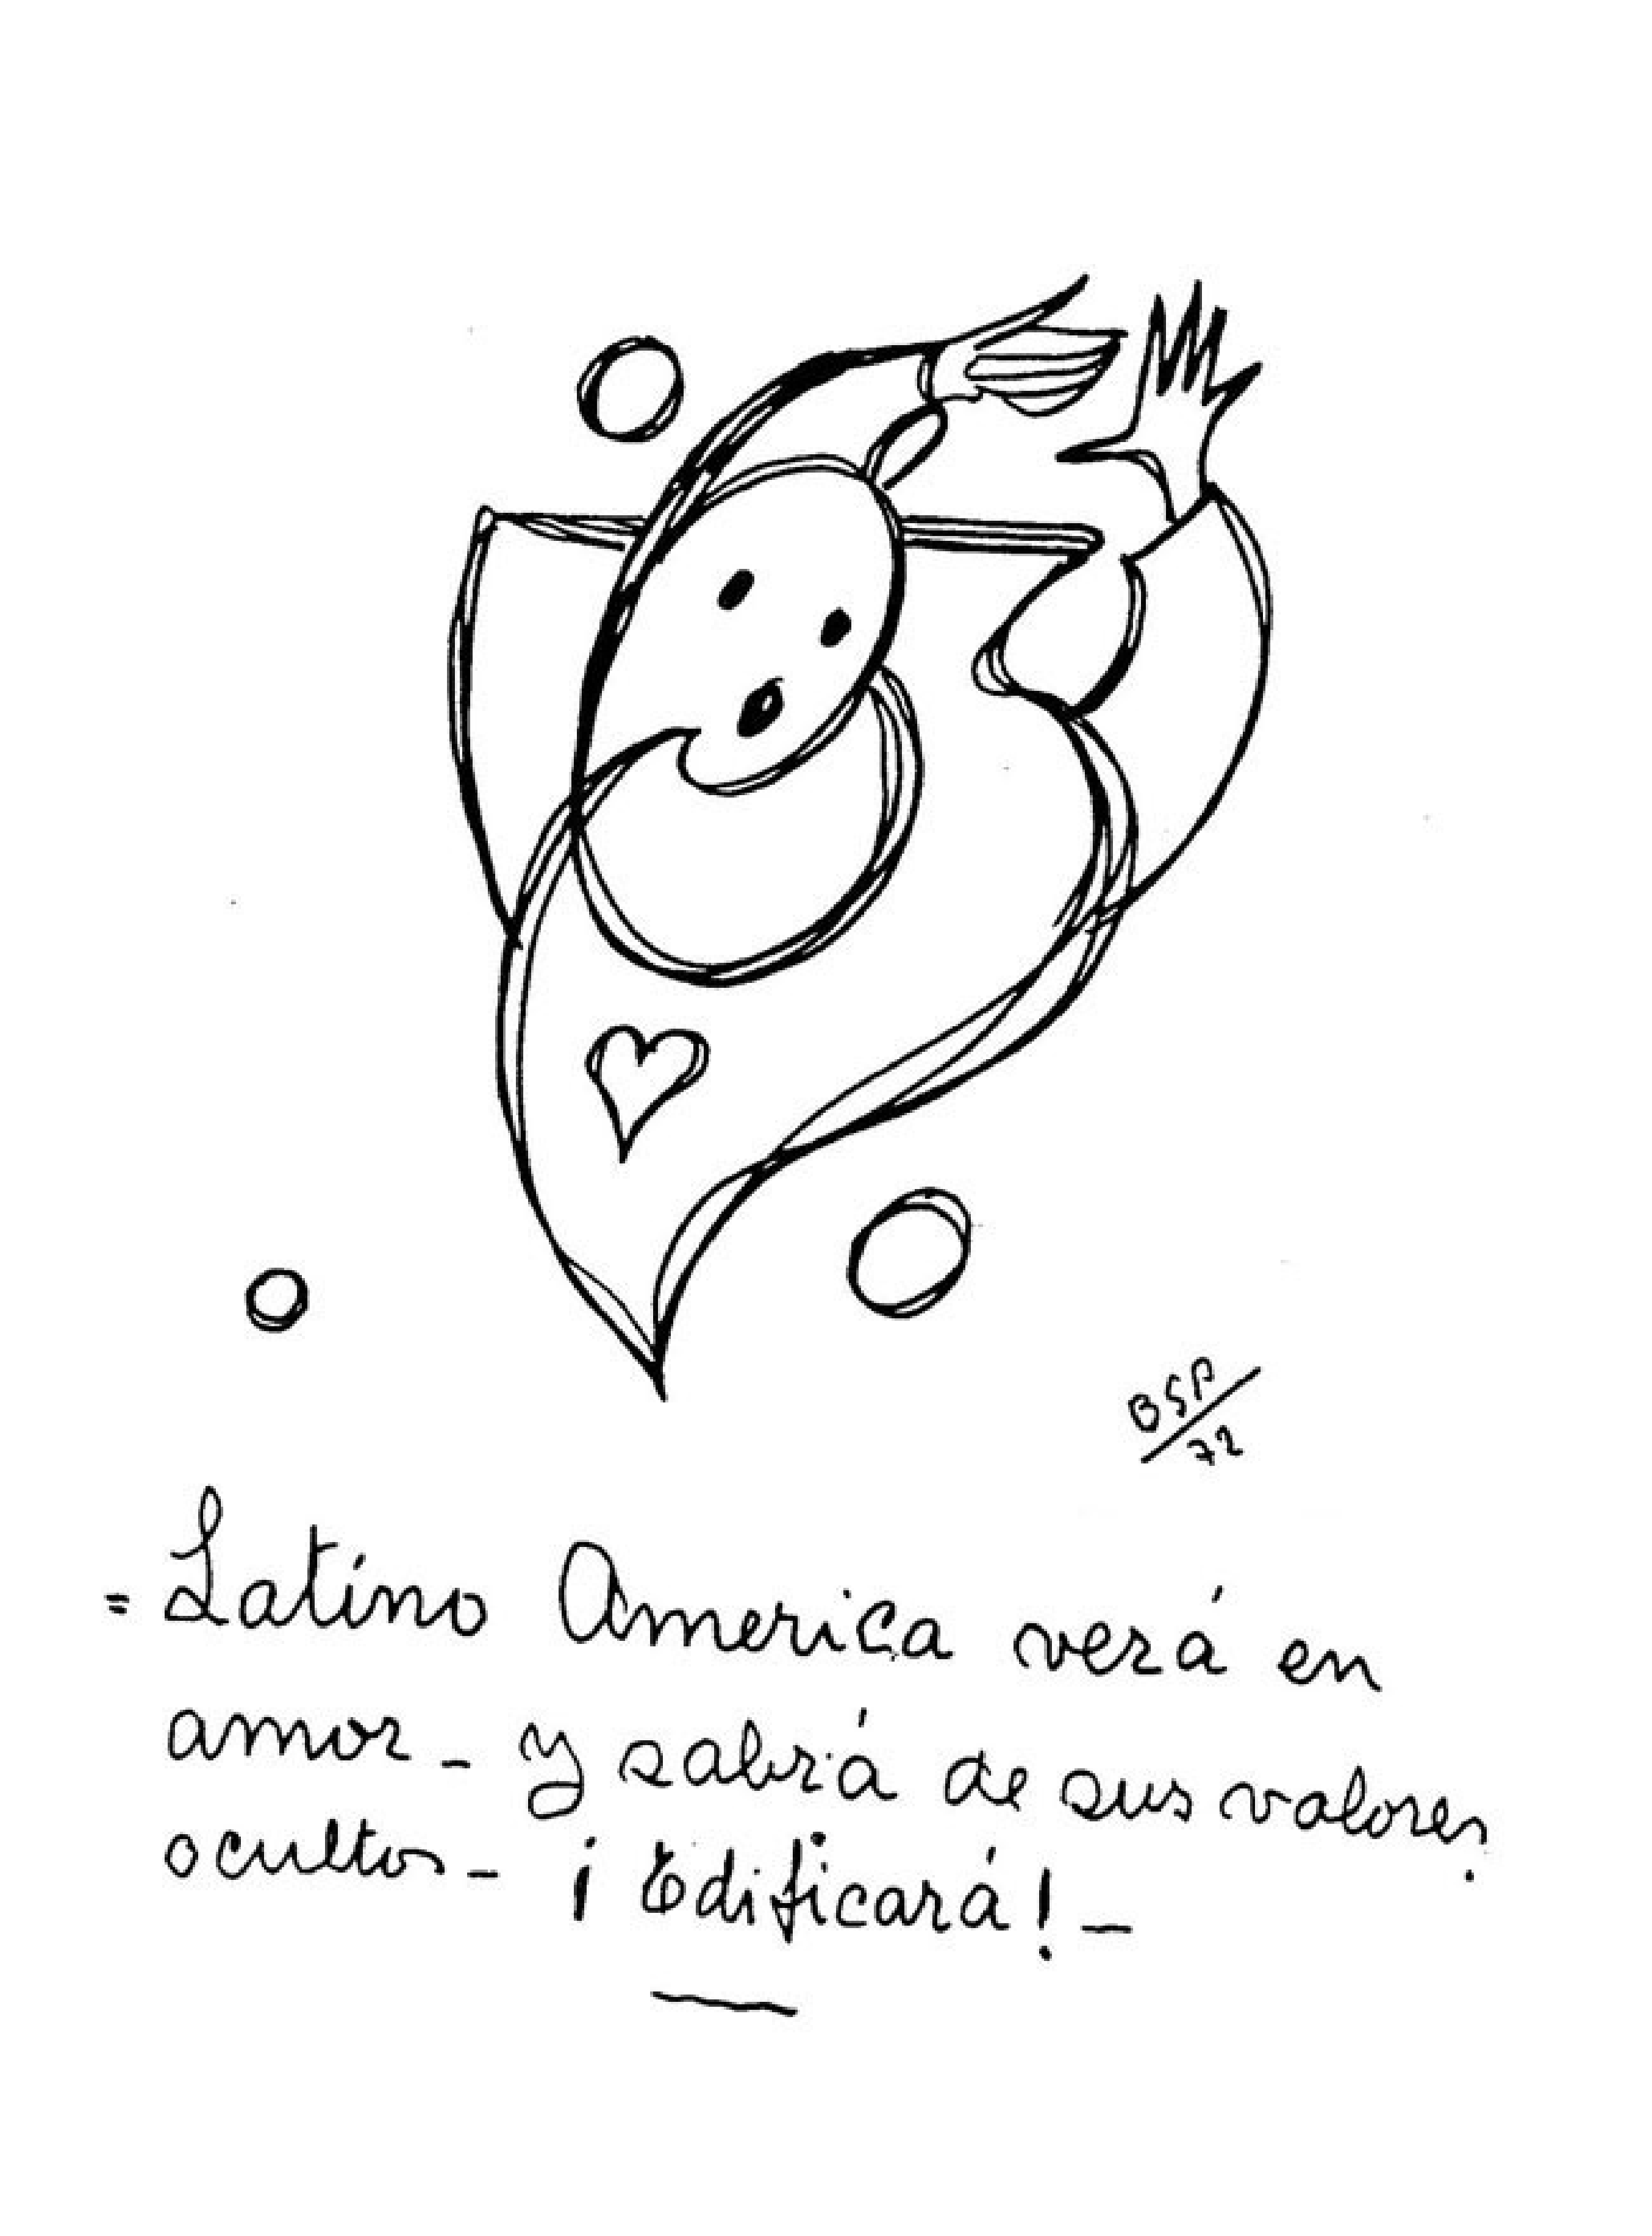 BSP
72
= Latino America verá en
amor - y sabrá de sus valores
ocultos - ¡Edificará! -